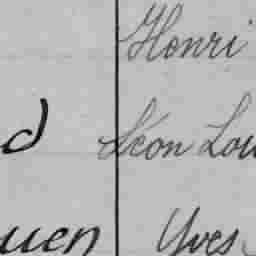 Henri
d Léon Lou
uen Yves